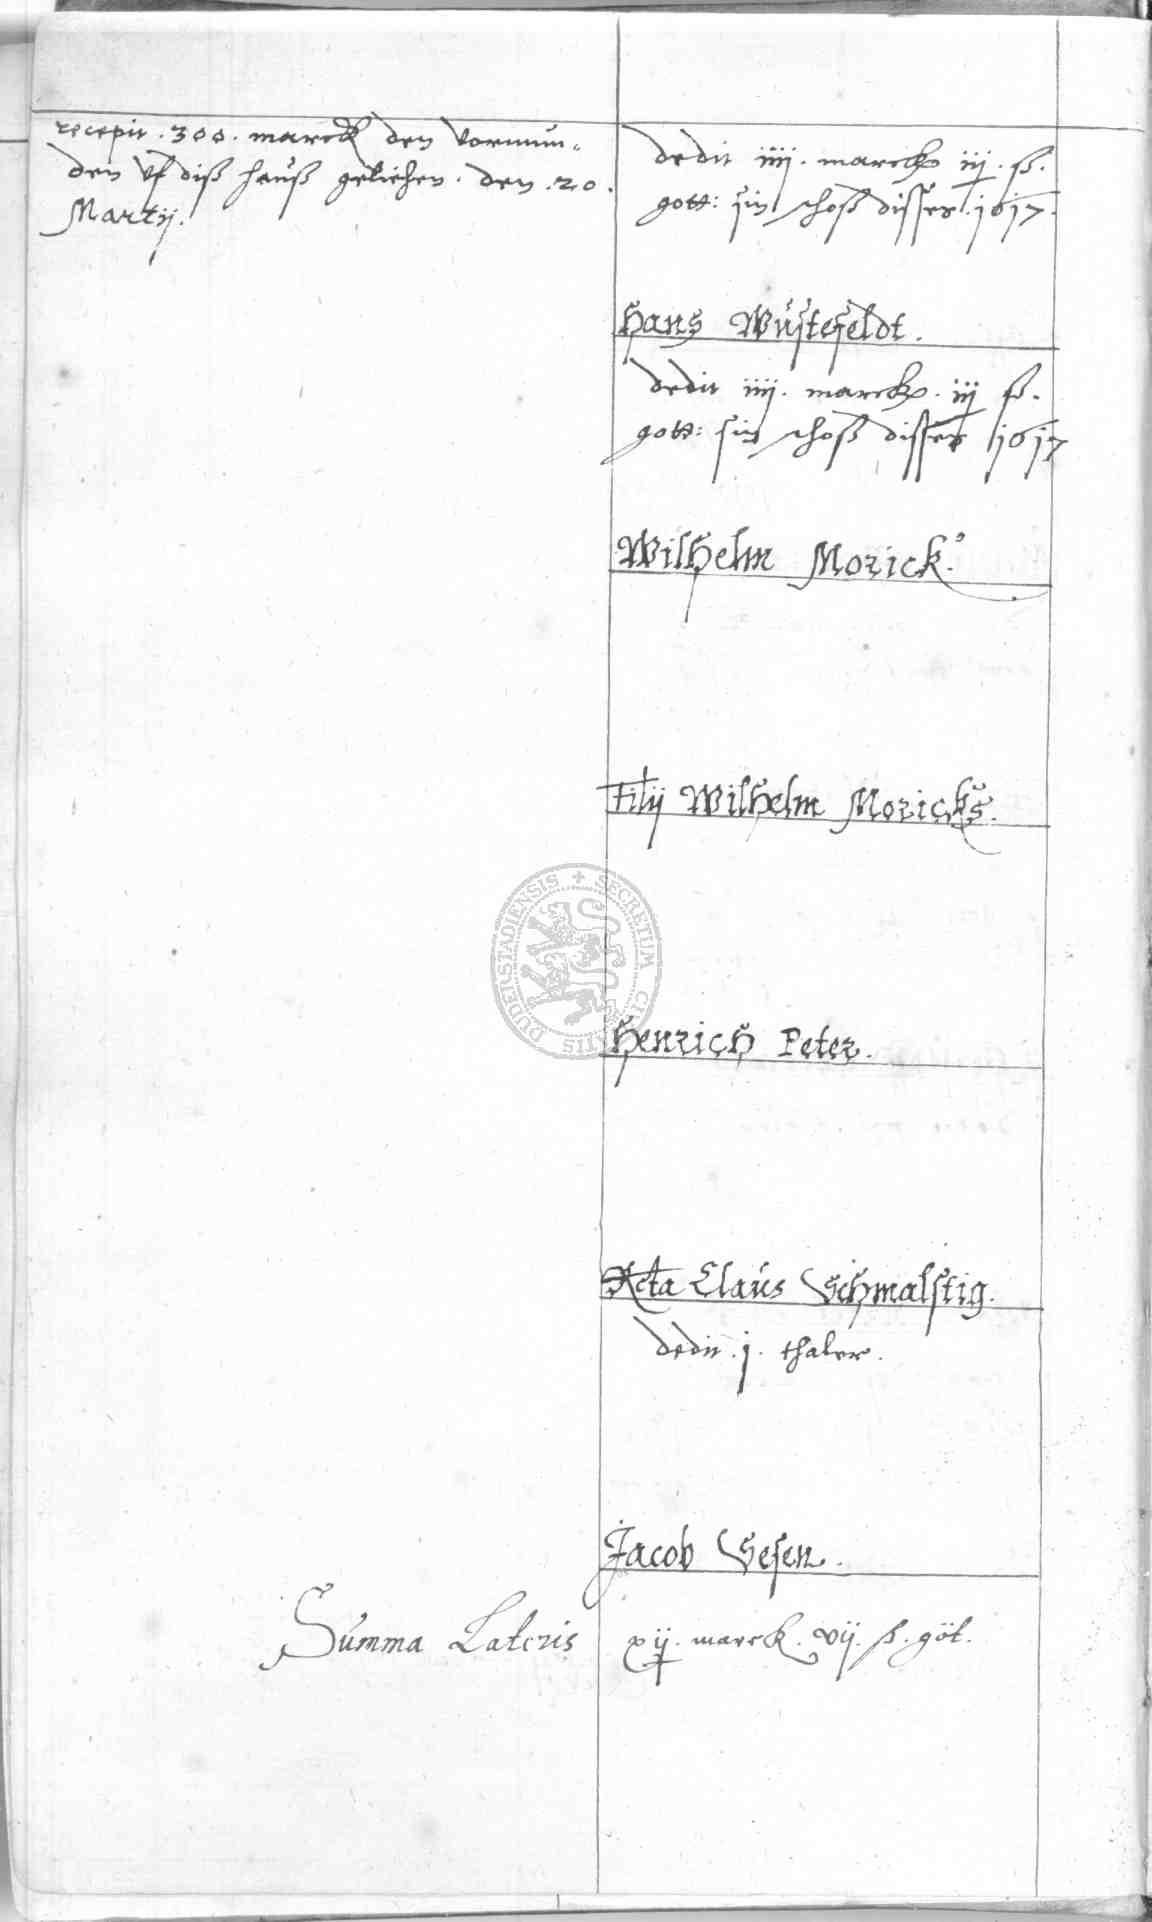 recepit . 300 . marck den vormun-
den vf diß hauß geliehen . den . 20 .
Martij .
dedit iiij . marck iij . ß .
gott: sin schoß disser . 1617 .
Hans Wüstefeldt .
dedit iiij . marck . iij ß .
gott: sin schoß disser 1617
Wilhelm Morick .
Filij Wilhelm Moricks .
DUDERSTADIENSIS + SECRETUM CIVITATIS
Henrich Peter .
Claus Schmalstig .
dedit . j . thaler .
Jacob Sesen .
Summa Lateris xij . marck . vij . ß . göt .